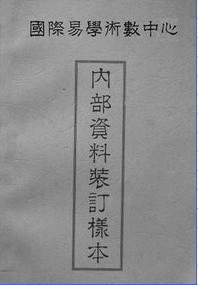 國際易學術數中心
內部資料裝訂樣本